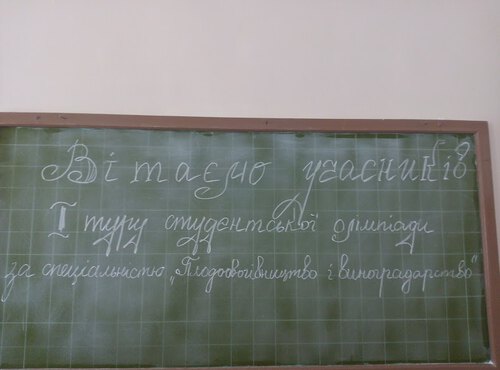 Вітаємо учасників
І туру студентської олімпіади
за спеціальністю „Плодоовочівництво і виноградарство"